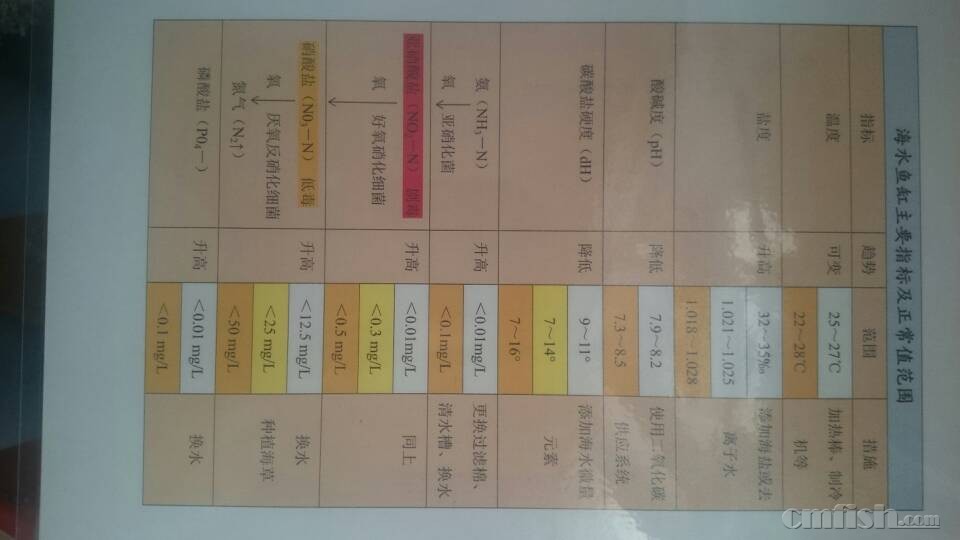 海水鱼缸主要指标及正常值范围
指标 趋势 范围 措施
温度 可变 25~27℃ 加热棒、制冷
22~28℃ 机等
盐度 升高 32~35‰ 添加海盐或去
1.021~1.025 离子水
1.018~1.028
酸碱度（pH） 降低 7.9~8.2 使用二氧化碳
7.3~8.5 供应系统
碳酸盐硬度（dH） 降低 9~11° 添加海水微量
7~14° 元素
7~16°
氨（NH₃—N） 升高 <0.01mg/L 更换过滤棉、
氧 亚硝化菌 <0.1mg/L 清水槽、换水
亚硝酸盐（NO₂—N）剧毒 升高 <0.01mg/L 同上
氧 好氧硝化细菌 <0.3 mg/L
<0.5 mg/L
硝酸盐（NO₃—N）低毒 升高 <12.5 mg/L 换水
氧 厌氧反硝化细菌 <25 mg/L 种植海草
氮气（N₂↑） <50 mg/L
磷酸盐（PO₄—） 升高 <0.01 mg/L 换水
<0.1 mg/L
cmfish.com